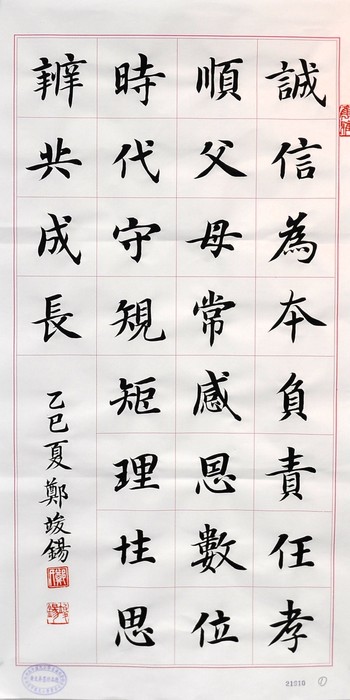 誠信為本負責任孝
順父母常感恩數位
時代守規矩理性思
辨共成長
乙巳夏鄭竣錫
21810 ①